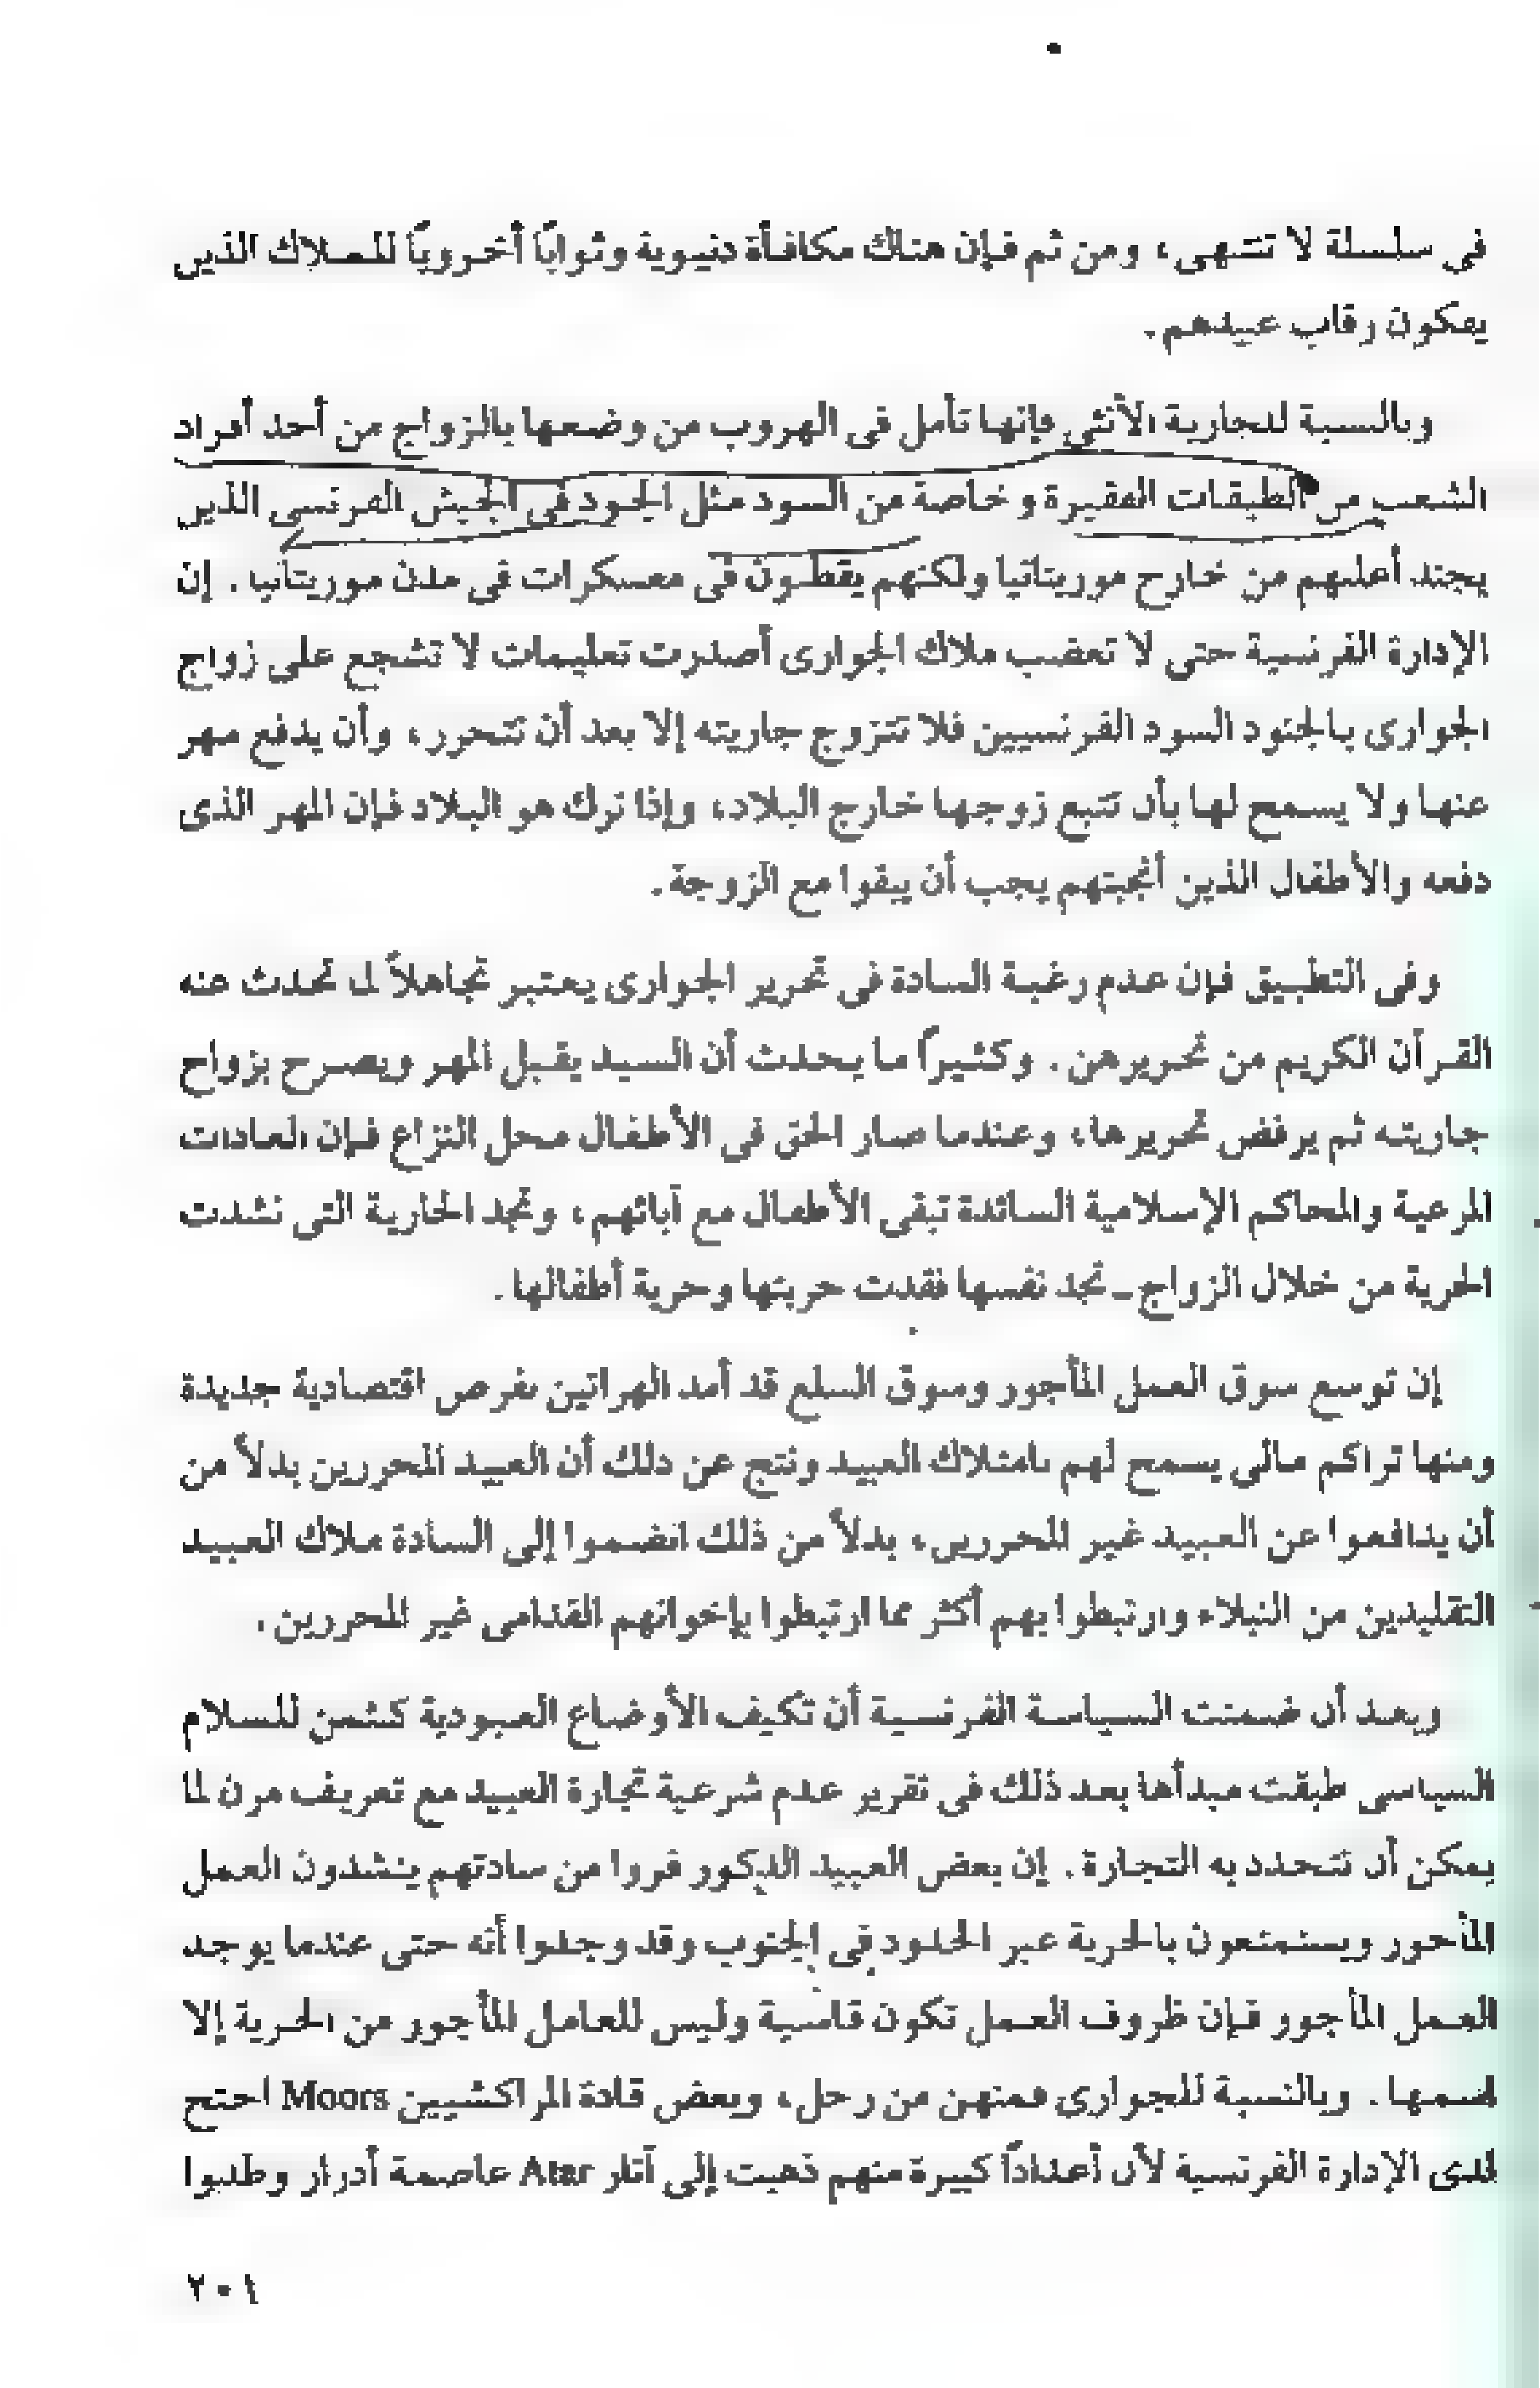 فى سلسلة لا تنتهى، ومن ثم فإن هناك مكافأة دنيوية وثوابًا أخرويًا للملاك الذين
يفكون رقاب عبيدهم.
وبالنسبة للجارية الأنثى فإنها تأمل فى الهروب من وضعها بالزواج من أحد أفراد
الشعب من الطبقات الفقيرة وخاصة من السود مثل الجنود فى الجيش الفرنسى الذين
يجند أغلبهم من خارج موريتانيا ولكنهم يقطنون فى معسكرات فى مدن موريتانيا. إن
الإدارة الفرنسية حتى لا تغضب ملاك الجوارى أصدرت تعليمات لا تشجع على زواج
الجوارى بالجنود السود الفرنسيين فلا تتزوج جاريته إلا بعد أن تتحرر، وأن يدفع مهر
عنها ولا يسمح لها بأن تتبع زوجها خارج البلاد، وإذا ترك هو البلاد فإن المهر الذى
دفعه والأطفال الذين أنجبتهم يجب أن يبقوا مع الزوجة.
وفى التطبيق فإن عدم رغبة السادة فى تحرير الجوارى يعتبر تجاهلاً لما تحدث عنه
القرآن الكريم من تحريرهن. وكثيرًا ما يحدث أن السيد يقبل المهر ويصرح بزواج
جاريته ثم يرفض تحريرها، وعندما صار الحق فى الأطفال محل النزاع فإن العادات
المرعية والمحاكم الإسلامية السائدة تبقى الأطفال مع آبائهم، وتجد الجارية التى نشدت
الحرية من خلال الزواج ـ تجد نفسها فقدت حريتها وحرية أطفالها.
إن توسع سوق العمل المأجور وسوق السلع قد أمد الهراتين بفرص اقتصادية جديدة
ومنها تراكم مالى يسمح لهم بامتلاك العبيد ونتج عن ذلك أن العبيد المحررين بدلاً من
أن يدافعوا عن العبيد غير المحررين، بدلاً من ذلك انضموا إلى السادة ملاك العبيد
التقليدين من النبلاء وارتبطوا بهم أكثر مما ارتبطوا بإخوانهم القدامى غير المحررين.
وبعد أن ضمنت السياسة الفرنسية أن تكيف الأوضاع العبودية كثمن للسلام
السياسى طبقت مبدأها بعد ذلك فى تقرير عدم شرعية تجارة العبيد مع تعريف مرن لما
يمكن أن تتحدد به التجارة. إن بعض العبيد الذكور فروا من سادتهم ينشدون العمل
المأجور ويستمتعون بالحرية عبر الحدود فى الجنوب وقد وجدوا أنه حتى عندما يوجد
العمل المأجور فإن ظروف العمل تكون قاسية وليس للعامل المأجور من الحرية إلا
اسمها. وبالنسبة للجوارى فمنهن من رحل، وبعض قادة المراكشيين Moors احتج
لدى الإدارة الفرنسية لأن أعدادًا كبيرة منهم ذهبت إلى آتار Atar عاصمة أدرار وطلبوا
٢٠١